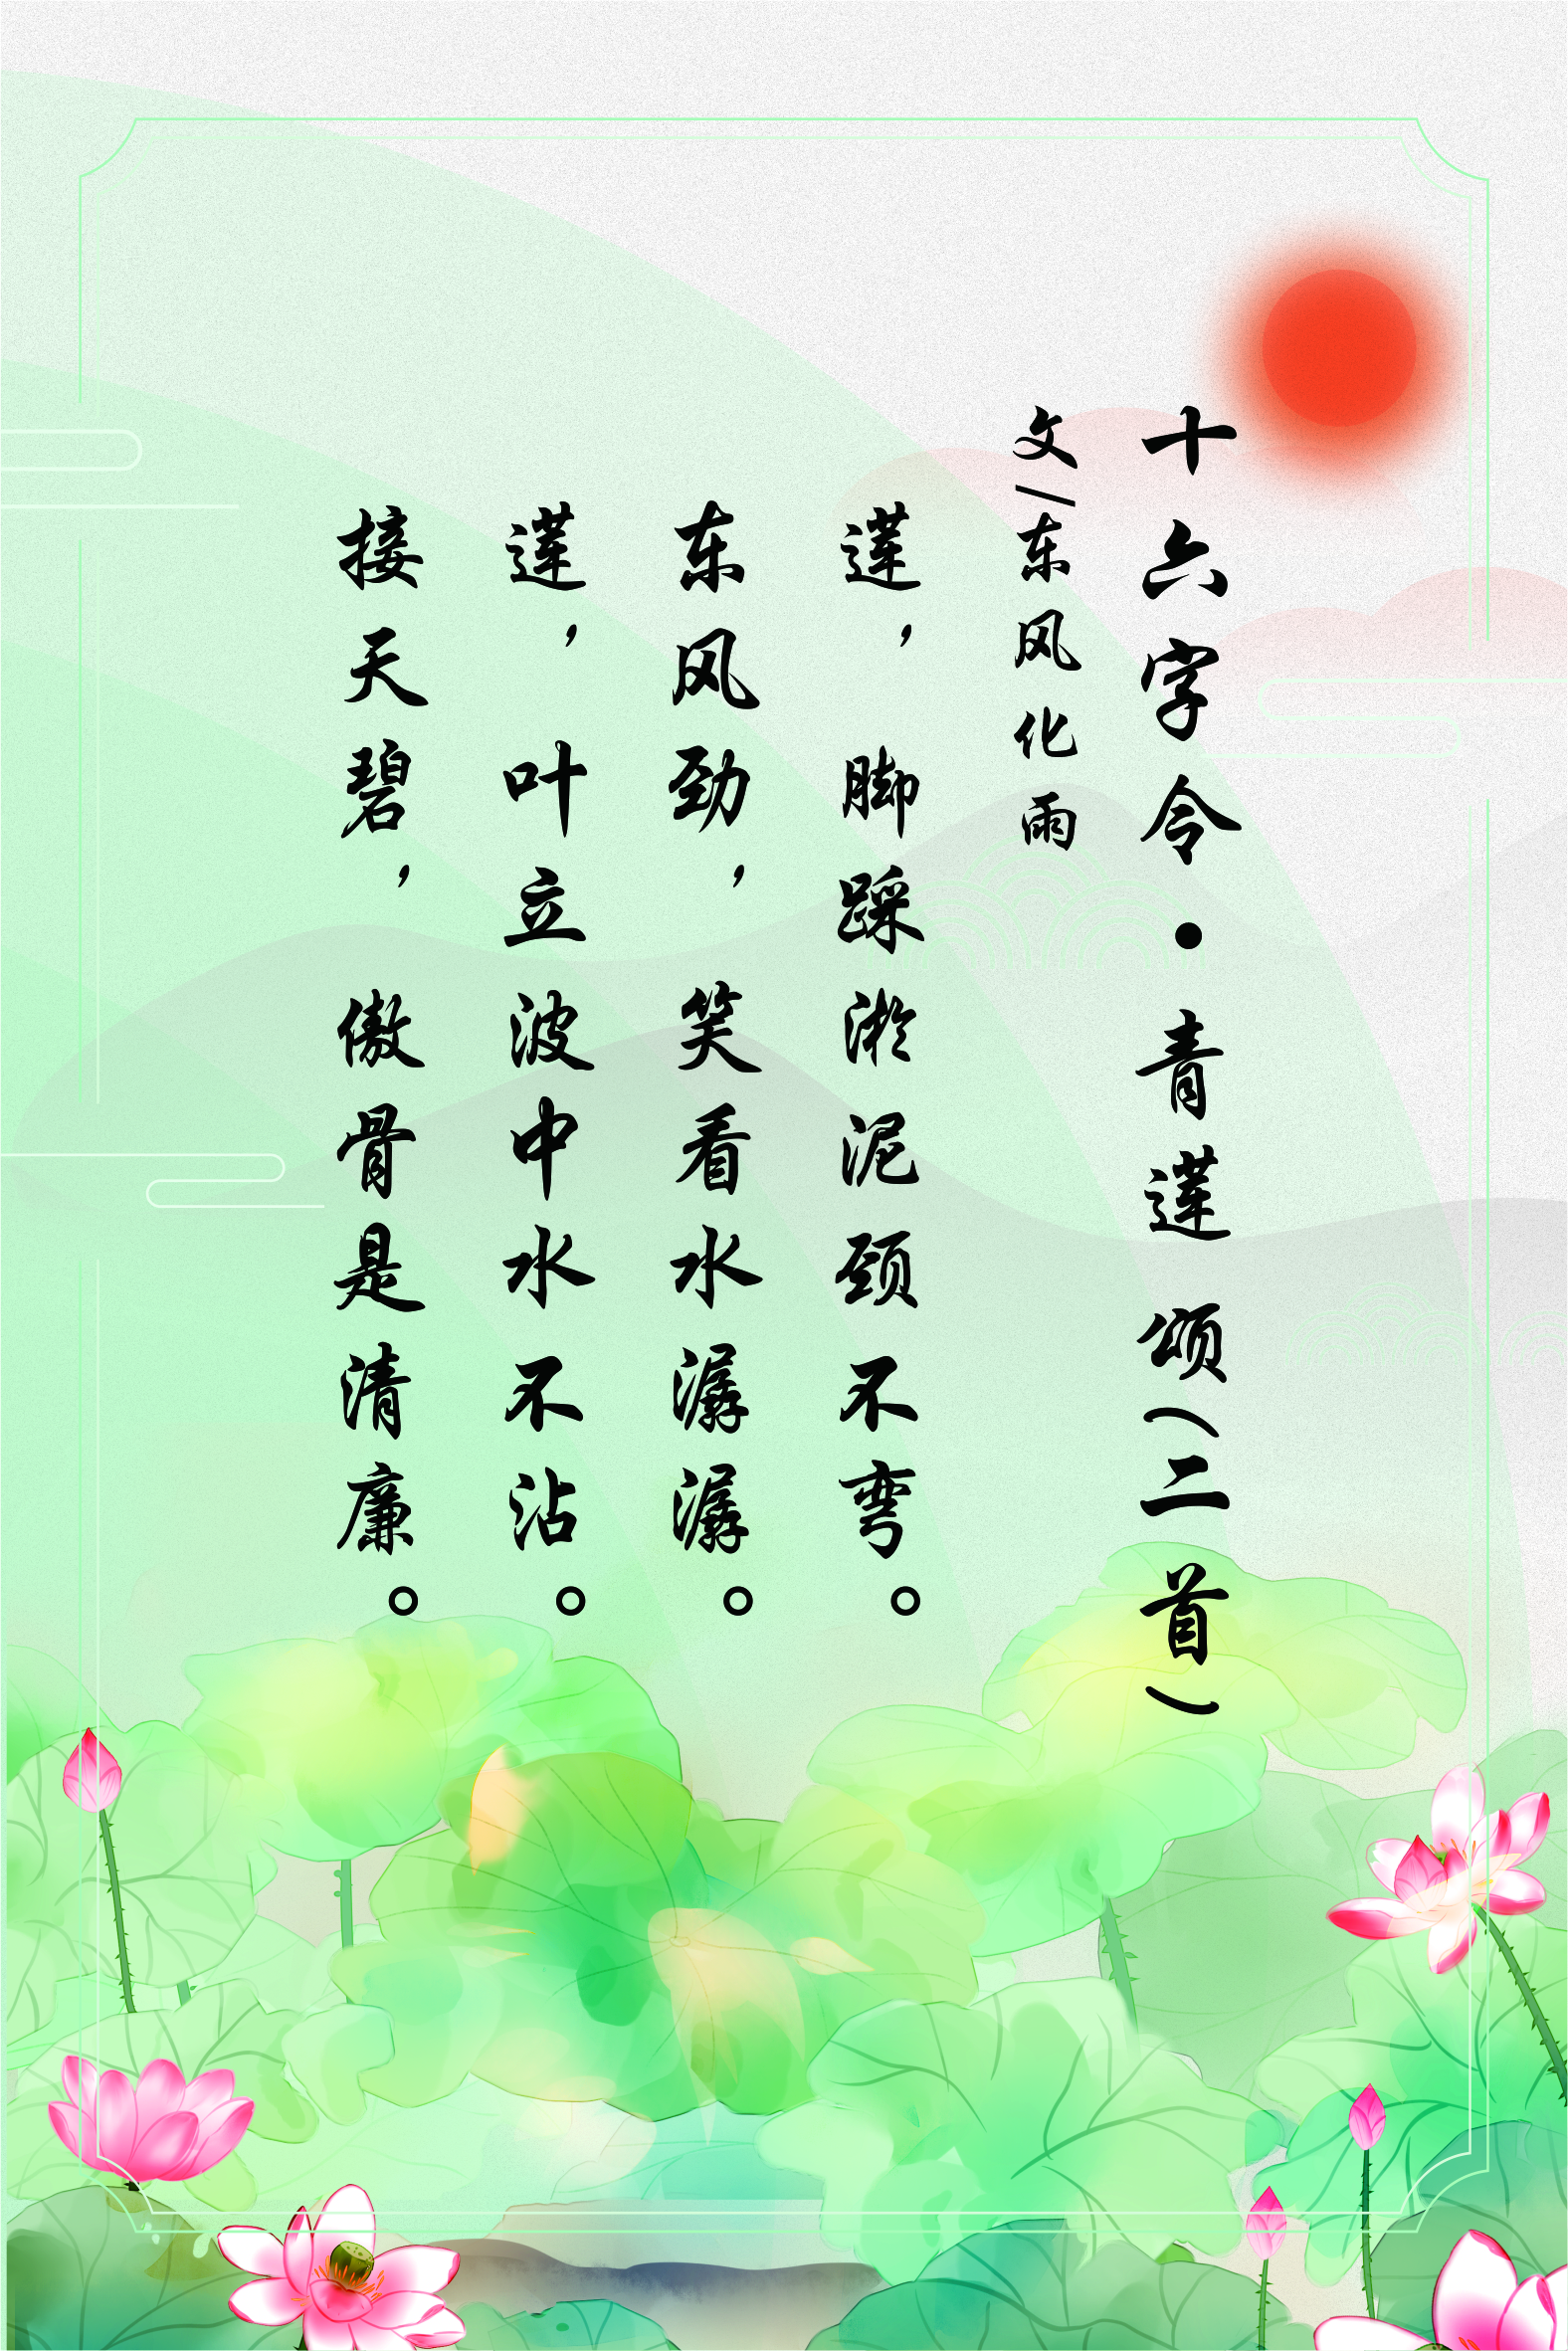 十六字令·青莲颂(二首)
文/东风化雨
莲，脚踩淤泥颈不弯。
东风劲，笑看水潺潺。
莲，叶立波中水不沾。
接天碧，傲骨是清廉。